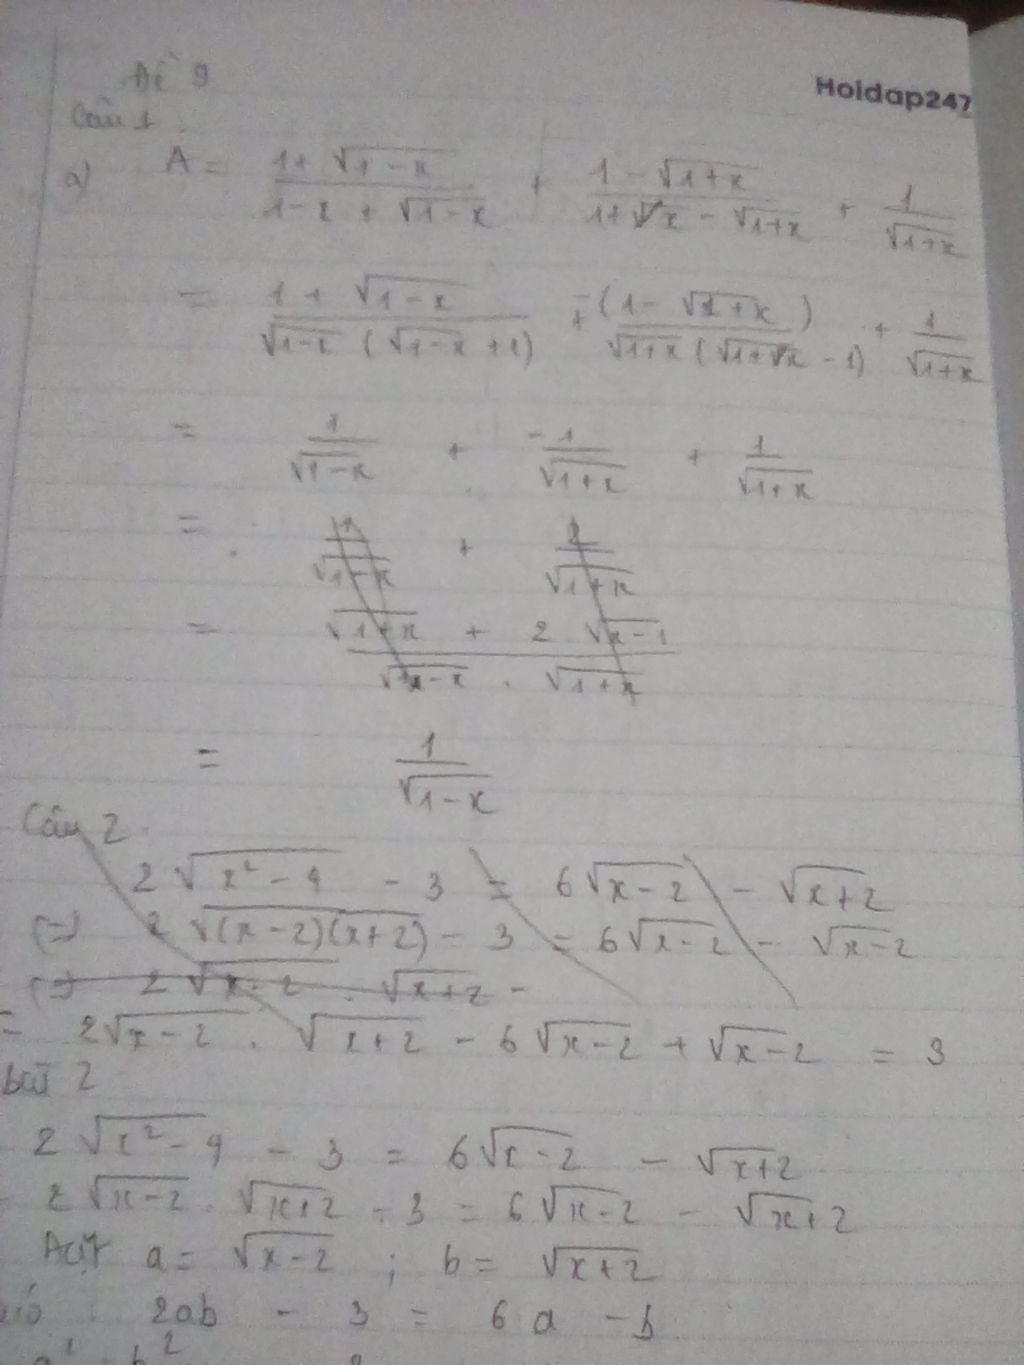 Đề 9
Hoidap247
Câu 1 :
a) A = \frac{1+\sqrt{1-x}}{1-x+\sqrt{1-x}} + \frac{1-\sqrt{1+x}}{1+x-\sqrt{1+x}} + \frac{1}{\sqrt{1+x}}
= \frac{1+\sqrt{1-x}}{\sqrt{1-x}(\sqrt{1-x}+1)} + \frac{-(1-\sqrt{1+x})}{\sqrt{1+x}(\sqrt{1+x}-1)} + \frac{1}{\sqrt{1+x}}
= \frac{1}{\sqrt{1-x}} + \frac{-1}{\sqrt{1+x}} + \frac{1}{\sqrt{1+x}}
= \frac{1}{\sqrt{1-x}} + \frac{2}{\sqrt{1+x}}
= \frac{\sqrt{1+x} + 2\sqrt{x-1}}{\sqrt{1-x} . \sqrt{1+x}}
= \frac{1}{\sqrt{1-x}}
Câu 2
2\sqrt{x^2-4} - 3 = 6\sqrt{x-2} - \sqrt{x+2}
(=) 2\sqrt{(x-2)(x+2)} - 3 = 6\sqrt{x-2} - \sqrt{x-2}
(=) 2\sqrt{x-2} . \sqrt{x+2} -
= 2\sqrt{x-2} . \sqrt{x+2} - 6\sqrt{x-2} + \sqrt{x-2} = 3
bài 2
2\sqrt{x^2-4} - 3 = 6\sqrt{x-2} - \sqrt{x+2}
2\sqrt{x-2} . \sqrt{x+2} - 3 = 6\sqrt{x-2} - \sqrt{x+2}
Đặt a = \sqrt{x-2} ; b = \sqrt{x+2}
: 2ab - 3 = 6a - b